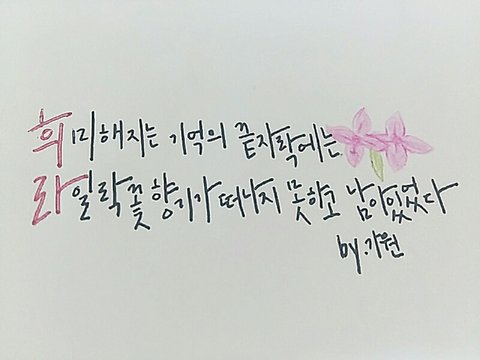 희미해지는 기억의 끝자락에는
라일락꽃 향기가 떠나지 못하고 남아있었다
by.가원